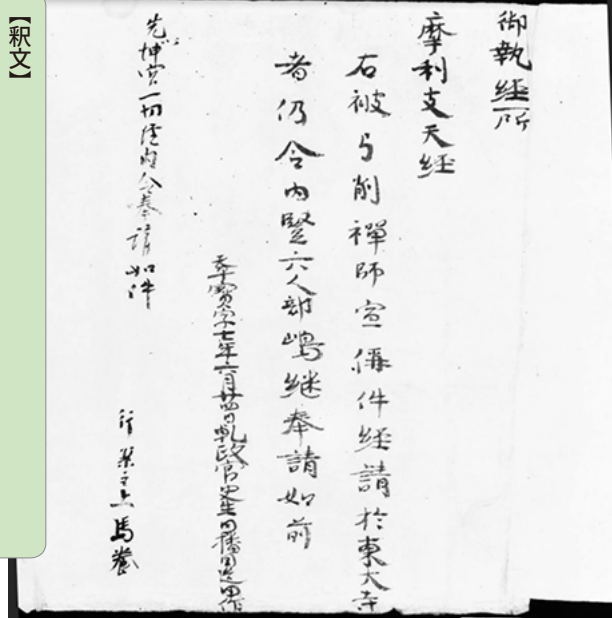 御執経所
摩利支天経
右被弓削禅師宣偁件経請於東大寺
者仍令内竪六人部嶋継奉請如前
天平宝字七年六月廿四日乾政官史生
先坤宮一切経内令奉請如件
上馬養
【釈文】